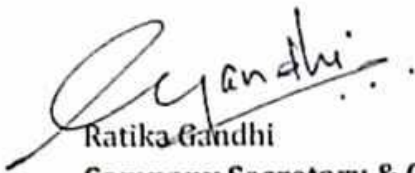 Gandhi
Ratika Gandhi
Company Secretary & C